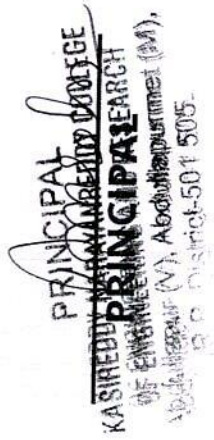 PRINCIPAL
KASIREDDY NARAYANREDDY COLLEGE
PRINCIPAL
OF ENGINEERING RESEARCH
(V), Abdullapurmet (M),
R.R. District-501 505.